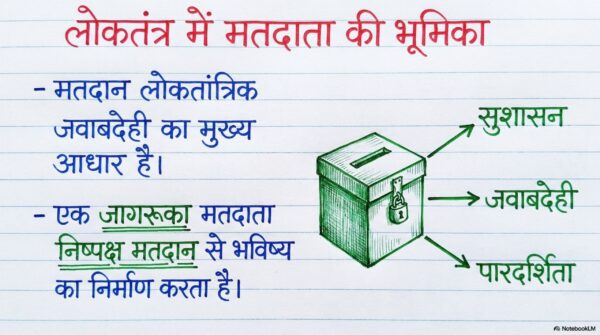 लोकतंत्र में मतदाता की भूमिका
- मतदान लोकतांत्रिक
जवाबदेही का मुख्य
आधार है।
- एक जागरूका मतदाता
निष्पक्ष मतदान से भविष्य
का निर्माण करता है।
सुशासन
जवाबदेही
पारदर्शिता
NotebookLM